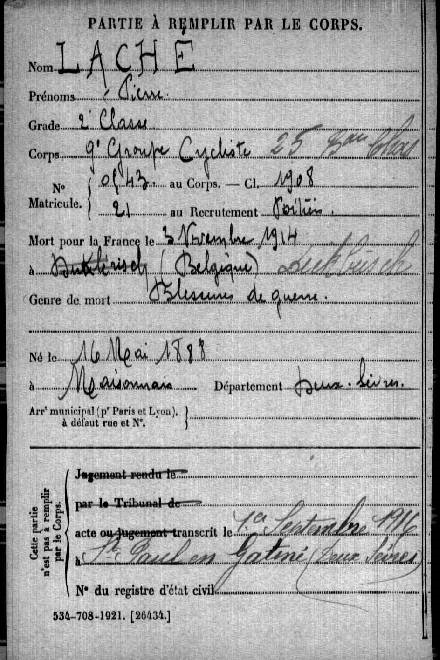 PARTIE À REMPLIR PAR LE CORPS.
Nom LACHÉ
Prénoms Pierre
Grade 2e Classe
Corps 9e Groupe Cycliste 25 Bon
No Matricule. 0543 au Corps. — Cl. 1908
21 au Recrutement Poitiers.
Mort pour la France le 3 Novembre 1914
à (Belgique) Dickbusch
Genre de mort Blessures de guerre.
Né le 16 Mai 1888
à Maisonnais Département Deux-Sèvres.
Arrt municipal (pr Paris et Lyon), à défaut rue et No.
Cette partie n'est pas à remplir par le Corps.
Jugement rendu le
par le Tribunal de
acte ou jugement transcrit le 1er Septembre 1916
à St Paul en Gatine (Deux Sèvres)
No du registre d'état civil
534-708-1921. [26434.]